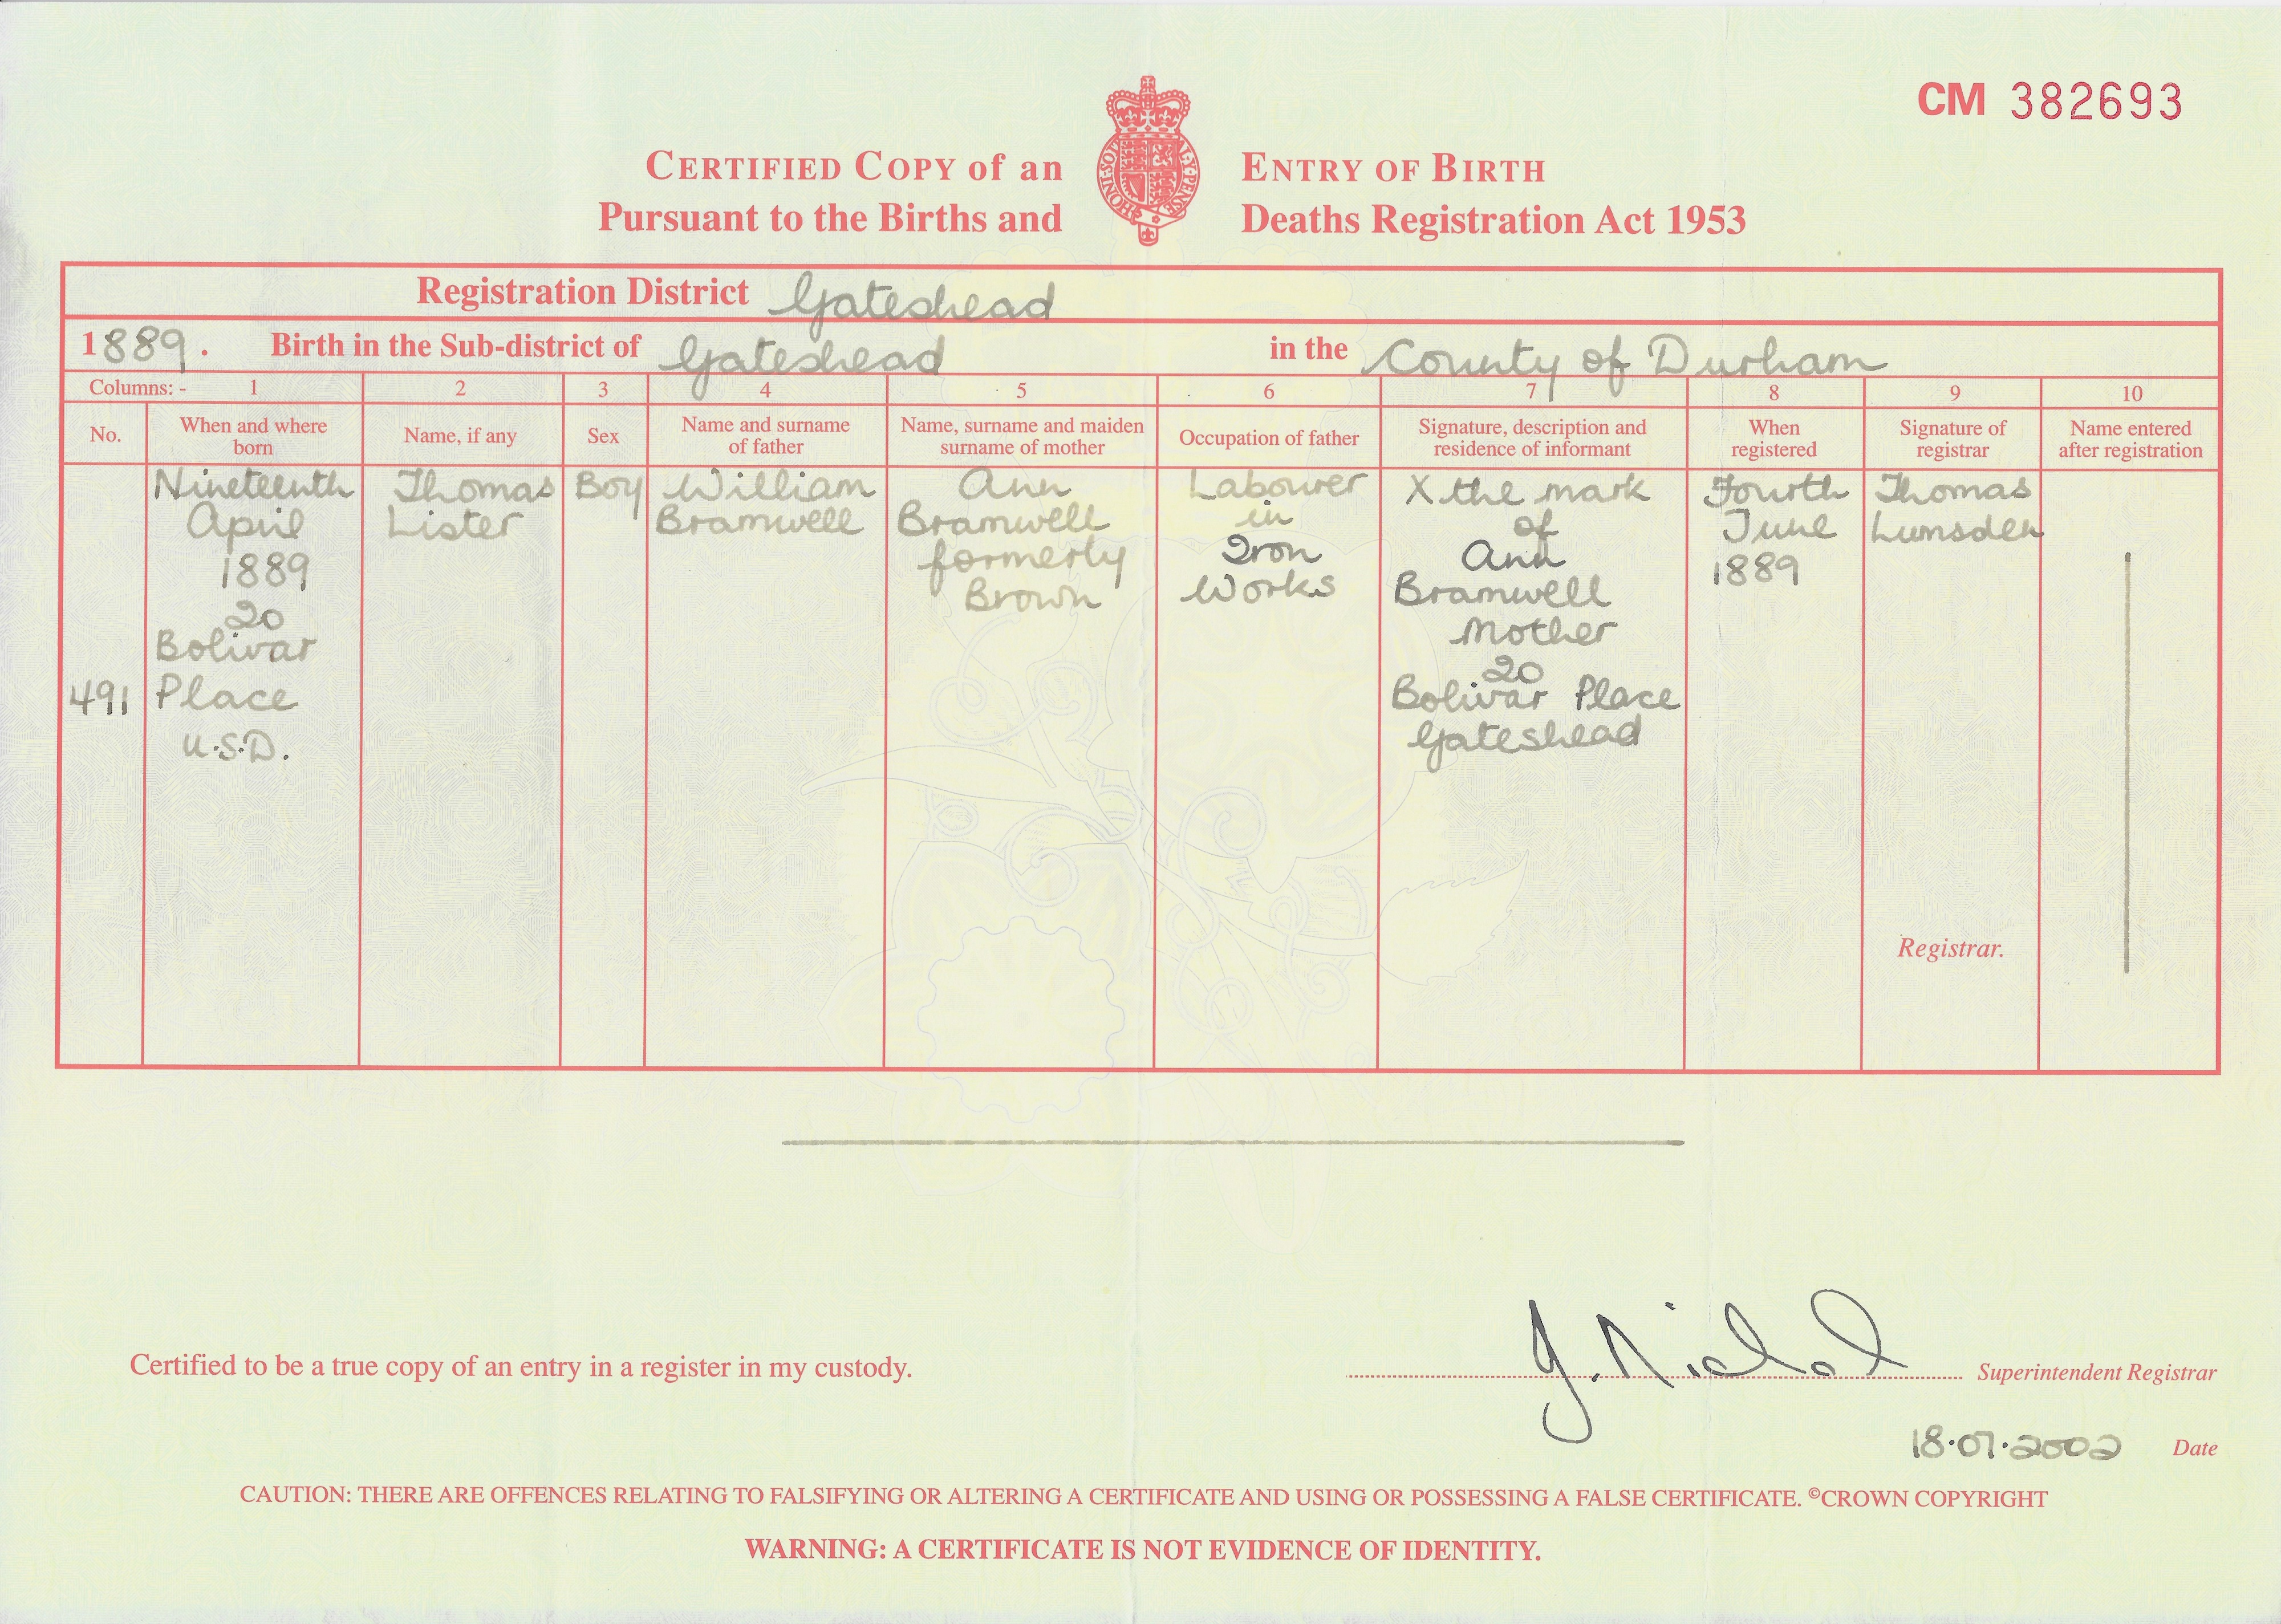 CM 382693
CERTIFIED COPY of an ENTRY OF BIRTH
Pursuant to the Births and Deaths Registration Act 1953
HONI·SOIT AL·Y·PENSE
Registration District Gateshead
1889. Birth in the Sub-district of Gateshead in the County of Durham
Columns: - 1 2 3 4 5 6 7 8 9 10
No.
When and where
born
Name, if any
Sex
Name and surname
of father
Name, surname and maiden
surname of mother
Occupation of father
Signature, description and
residence of informant
When
registered
Signature of
registrar
Name entered
after registration
491
Nineteenth
April
1889
20
Bolivar
Place
U.S.D.
Thomas
Lister
Boy
William
Bramwell
Ann
Bramwell
formerly
Brown
Labourer
in
Iron
Works
X the mark
of
Ann
Bramwell
Mother
20
Bolivar Place
Gateshead
Fourth
June
1889
Thomas
Lumsden
Registrar.
Certified to be a true copy of an entry in a register in my custody.
J. Nichol Superintendent Registrar
18.07.2002 Date
CAUTION: THERE ARE OFFENCES RELATING TO FALSIFYING OR ALTERING A CERTIFICATE AND USING OR POSSESSING A FALSE CERTIFICATE. ©CROWN COPYRIGHT
WARNING: A CERTIFICATE IS NOT EVIDENCE OF IDENTITY.